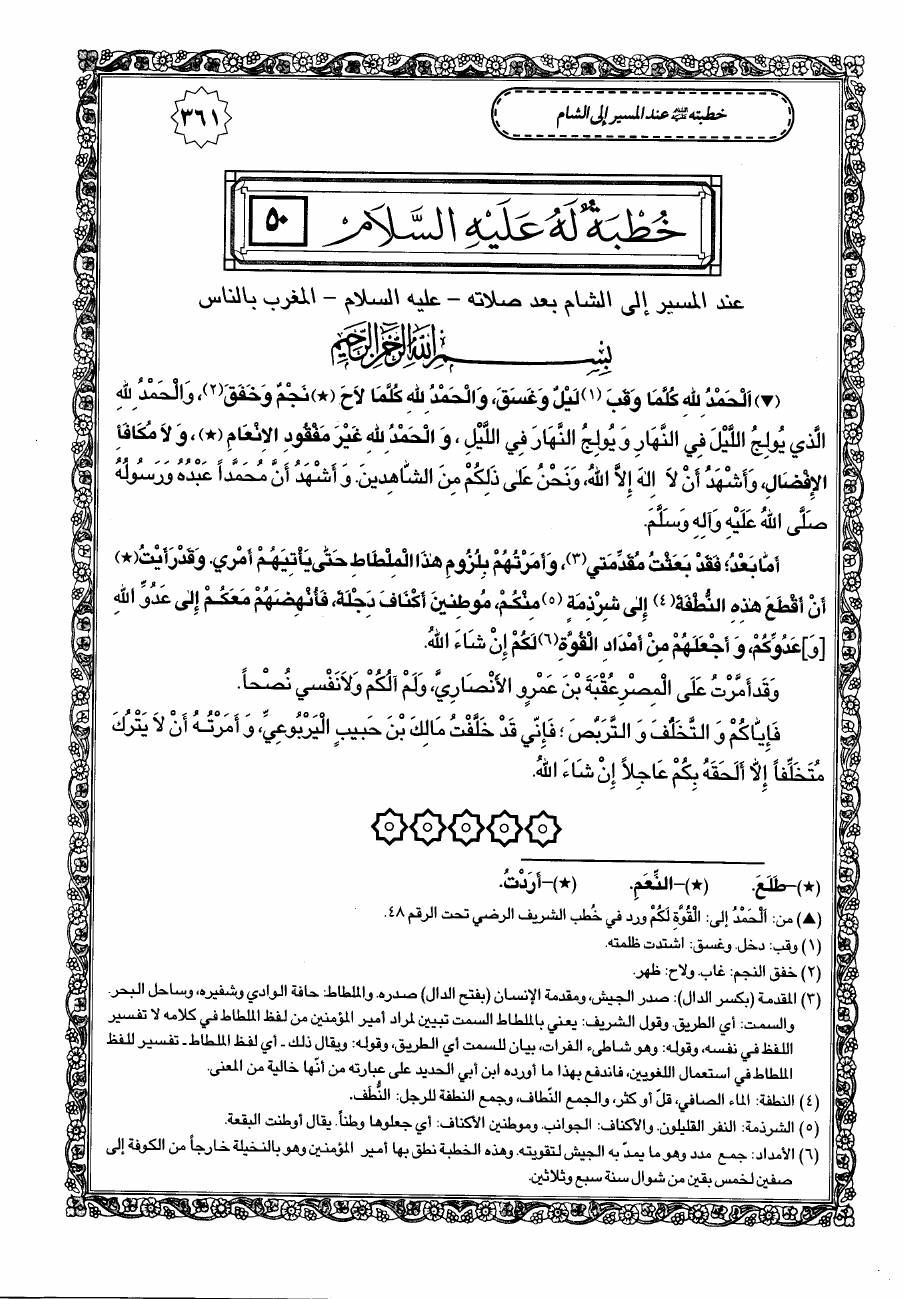 خطبته عليه السلام عند المسير إلى الشام
٣٦١
خُطْبَةٌ لَهُ عَلَيْهِ السَّلَامُ
٥٠
عند المسير إلى الشام بعد صلاته – عليه السلام – المغرب بالناس
بِسْمِ اللهِ الرَّحْمٰنِ الرَّحِيمِ
(▼) اَلْحَمْدُ للهِ كُلَّمَا وَقَبَ (١) لَيْلٌ وَغَسَقَ، وَالْحَمْدُ للهِ كُلَّمَا لاَحَ (★) نَجْمٌ وَخَفَقَ (٢)، وَالْحَمْدُ للهِ
الَّذي يُولِجُ اللَّيْلَ فِي النَّهَارِ وَ يُولِجُ النَّهَارَ فِي اللَّيْلِ ، وَ الْحَمْدُ للهِ غَيْرَ مَفْقُودِ الإِنْعَامِ (★) ، وَ لاَ مُكَافَأَ
الإِفْضَالِ، وَأَشْهَدُ أَنْ لاَ إِلٰهَ إِلاَّ اللهُ، وَنَحْنُ عَلىٰ ذٰلِكُمْ مِنَ الشَّاهِدينَ. وَ أَشْهَدُ أَنَّ مُحَمَّداً عَبْدُهُ وَرَسُولُهُ
صَلَّى اللهُ عَلَيْهِ وَآلِهِ وَسَلَّمَ.
أَمَّا بَعْدُ؛ فَقَدْ بَعَثْتُ مُقَدِّمَتي (٣)، وَأَمَرْتُهُمْ بِلُزُومِ هٰذَا الْمِلْطَاطِ حَتّٰى يَأْتِيَهُمْ أَمْري. وَقَدْ رَأَيْتُ (★)
أَنْ أَقْطَعَ هٰذِهِ النُّطْفَةَ (٤) إِلىٰ شِرْذِمَةٍ (٥) مِنْكُمْ، مُوطِنينَ أَكْنَافَ دَجْلَةَ، فَأُنْهِضَهُمْ مَعَكُمْ إِلىٰ عَدُوِّ اللهِ
[وَ] عَدُوِّكُمْ، وَ أَجْعَلَهُمْ مِنْ أَمْدَادِ الْقُوَّةِ (٦) لَكُمْ إِنْ شَاءَ اللهُ.
وَقَد أَمَّرْتُ عَلَى الْمِصْرِ عُقْبَةَ بْنَ عَمْرِو الأَنْصَارِيَّ، وَلَمْ آلُكُمْ وَلاَ نَفْسي نُصْحاً.
فَإِيَّاكُمْ وَ التَّخَلُّفَ وَ التَّرَبُّصَ ؛ فَإِنّي قَدْ خَلَّفْتُ مَالِكَ بْنَ حَبيبٍ الْيَرْبُوعِيَّ، وَ أَمَرْتُهُ أَنْ لاَ يَتْرُكَ
مُتَخَلِّفاً إِلاَّ أَلْحَقَهُ بِكُمْ عَاجِلاً إِنْ شَاءَ اللهُ.
(★)–طَلَعَ. (★)–النِّعَمِ. (★)–أَرَدْتُ.
(▲) من: اَلْحَمْدُ إلى: الْقُوَّةِ لَكُمْ ورد في خُطب الشريف الرضي تحت الرقم ٤٨.
(١) وقب: دخل. وغسق: اشتدت ظلمته.
(٢) خفق النجم: غاب. ولاح: ظهر.
(٣) المقدمة (بكسر الدال): صدر الجيش، ومقدمة الإنسان (بفتح الدال) صدره. والملطاط: حافة الوادي وشفيره، وساحل البحر.
والسمت: أي الطريق. وقول الشريف: يعني بالملطاط السمت تبيين لمراد أمير المؤمنين من لفظ الملطاط في كلامه لا تفسير
اللفظ في نفسه، وقوله: وهو شاطىء الفرات، بيان للسمت أي الطريق، وقوله: ويقال ذلك ـ أي لفظ الملطاط ـ تفسير للفظ
الملطاط في استعمال اللغويين، فاندفع بهذا ما أورده ابن أبي الحديد على عبارته من أنّها خالية من المعنى.
(٤) النطفة: الماء الصافي، قلّ أو كثر، والجمع النّطاف، وجمع النطفة للرجل: النُّطَف.
(٥) الشرذمة: النفر القليلون. والأكناف: الجوانب. وموطنين الأكناف: أي جعلوها وطناً. يقال أوطنت البقعة.
(٦) الأمداد: جمع مدد وهو ما يمدّ به الجيش لتقويته. وهذه الخطبة نطق بها أمير المؤمنين وهو بالنخيلة خارجاً من الكوفة إلى
صفين لخمس بقين من شوال سنة سبع وثلاثين.